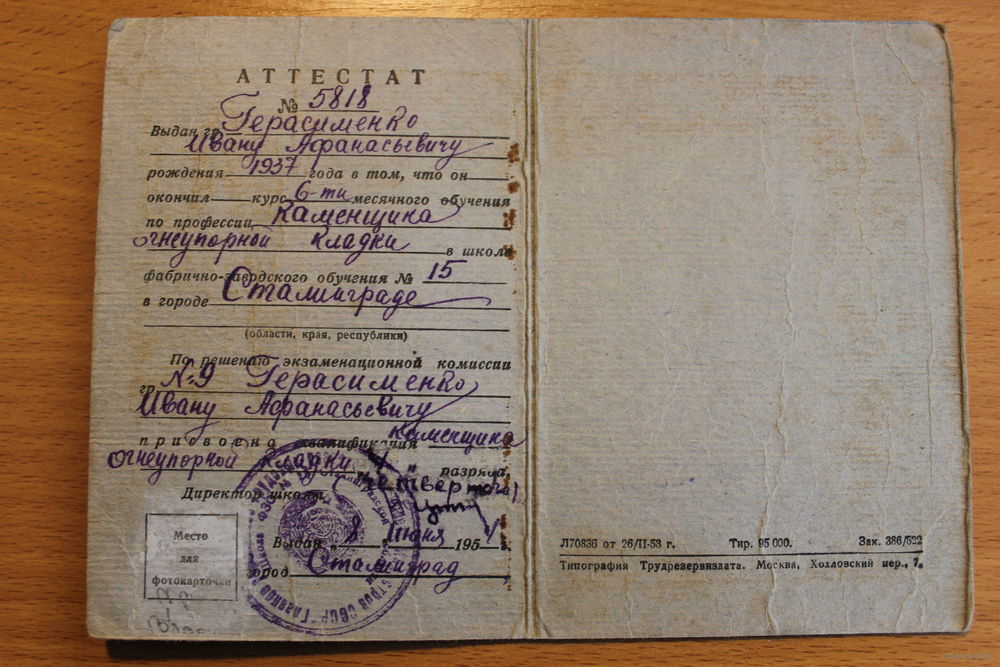 АТТЕСТАТ
№ 5818
Выдан гр. Герасименко
Ивану Афанасьевичу
рождения 1937 года в том, что он
окончил курс 6-ти месячного обучения
по профессии каменщика
огнеупорной кладки в школе
фабрично-заводского обучения № 15
в городе Сталинграде
(области, края, республики)
По решению экзаменационной комиссии
гр. №9 Герасименко
Ивану Афанасьевичу
присвоена квалификация каменщика
огнеупорной кладки 4 разряда.
(четвертого)
Директор школы
Выдан „8 июня 195 г.
город Сталинград
Место
для
фотокарточки
Л70836 от 26/II-53 г. Тир. 95 000. Зак. 386/522
Типография Трудрезервиздата. Москва, Хохловский пер., 7.